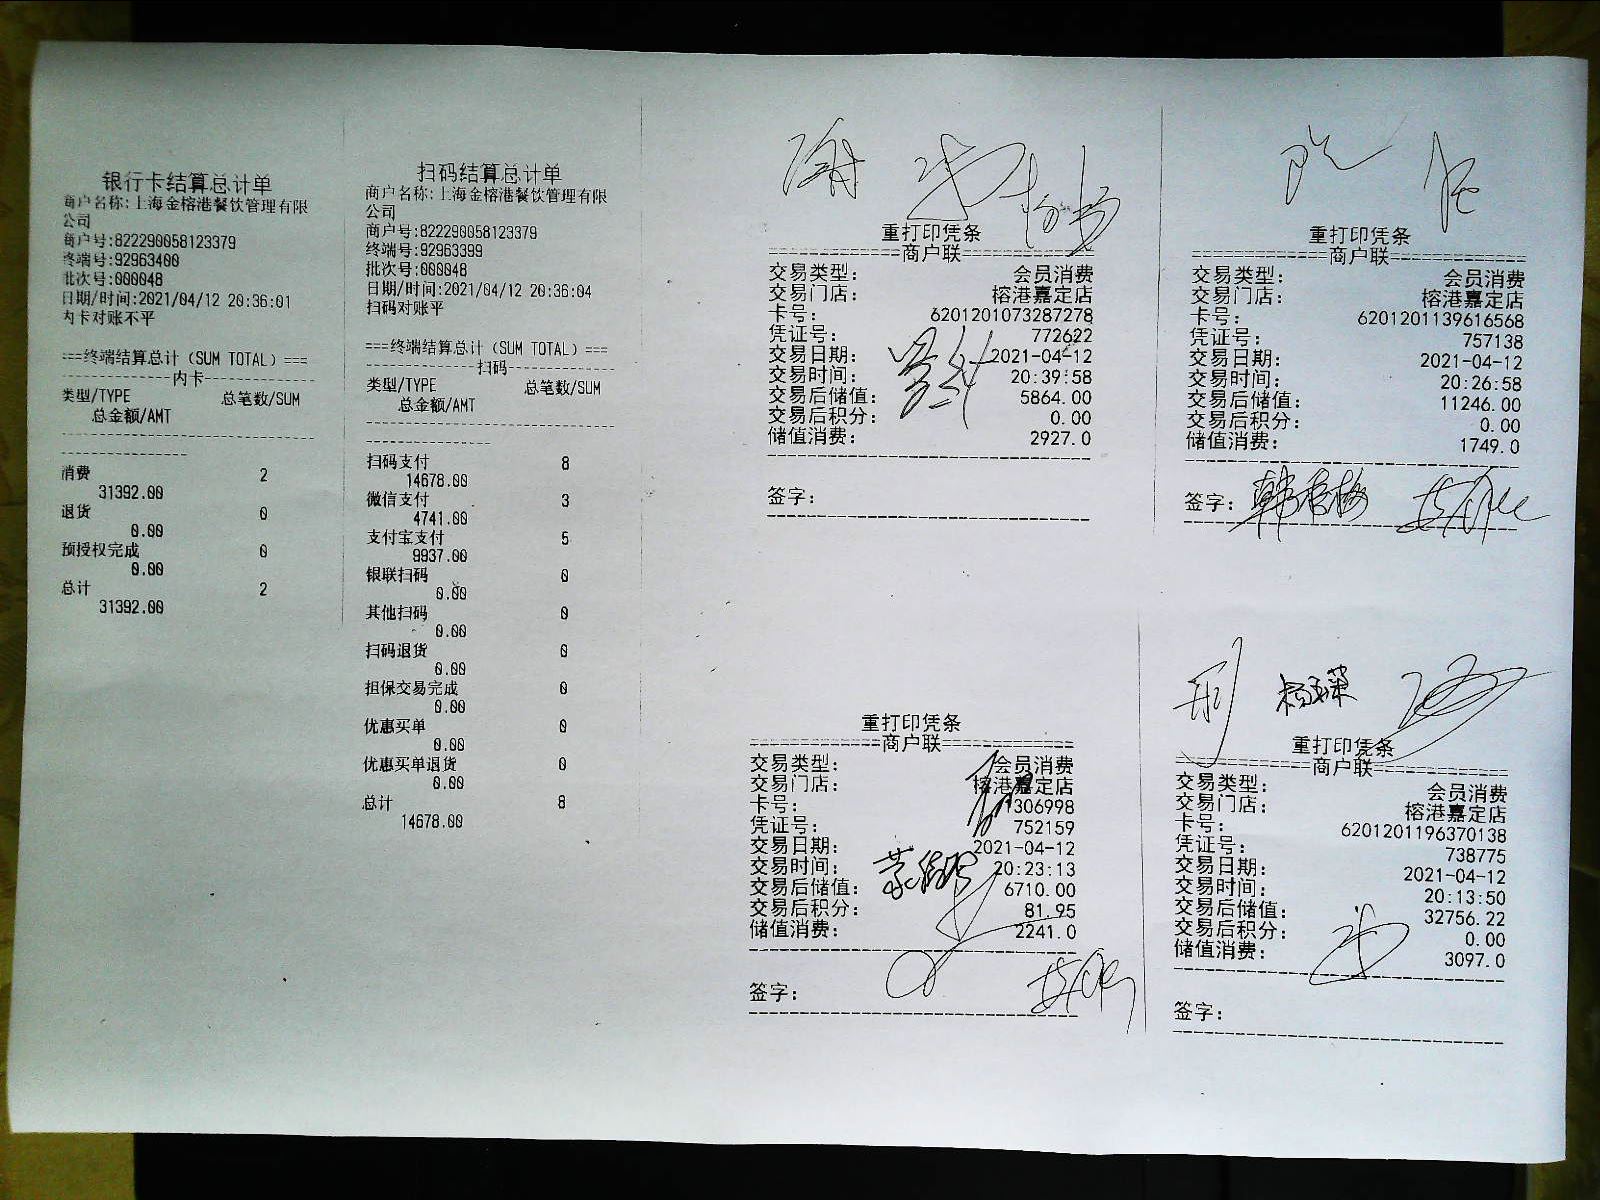 银行卡结算总计单
商户名称:上海金榕港餐饮管理有限
公司
商户号:822290058123379
终端号:92963400
批次号:000048
日期/时间:2021/04/12 20:36:01
内卡对账不平
===终端结算总计（SUM TOTAL）===
---------------内卡---------------
类型/TYPE 总笔数/SUM
总金额/AMT
消费 2
31392.00
退货 0
0.00
预授权完成 0
0.00
总计 2
31392.00
扫码结算总计单
商户名称:上海金榕港餐饮管理有限
公司
商户号:822290058123379
终端号:92963399
批次号:000048
日期/时间:2021/04/12 20:36:04
扫码对账平
===终端结算总计（SUM TOTAL）===
---------------扫码---------------
类型/TYPE 总笔数/SUM
总金额/AMT
扫码支付 8
14678.00
微信支付 3
4741.00
支付宝支付 5
9937.00
银联扫码 0
0.00
其他扫码 0
0.00
扫码退货 0
0.00
担保交易完成 0
0.00
优惠买单 0
0.00
优惠买单退货 0
0.00
总计 8
14678.00
重打印凭条
============商户联============
交易类型: 会员消费
交易门店: 榕港嘉定店
卡号: 6201201073287278
凭证号: 772622
交易日期: 2021-04-12
交易时间: 20:39:58
交易后储值: 5864.00
交易后积分: 0.00
储值消费: 2927.0
签字:
重打印凭条
============商户联============
交易类型: 会员消费
交易门店: 榕港嘉定店
卡号: 6201201139616568
凭证号: 757138
交易日期: 2021-04-12
交易时间: 20:26:58
交易后储值: 11246.00
交易后积分: 0.00
储值消费: 1749.0
签字:
重打印凭条
============商户联============
交易类型: 会员消费
交易门店: 榕港嘉定店
卡号: 1306998
凭证号: 752159
交易日期: 2021-04-12
交易时间: 20:23:13
交易后储值: 6710.00
交易后积分: 81.95
储值消费: 2241.0
签字:
重打印凭条
============商户联============
交易类型: 会员消费
交易门店: 榕港嘉定店
卡号: 6201201196370138
凭证号: 738775
交易日期: 2021-04-12
交易时间: 20:13:50
交易后储值: 32756.22
交易后积分: 0.00
储值消费: 3097.0
签字: